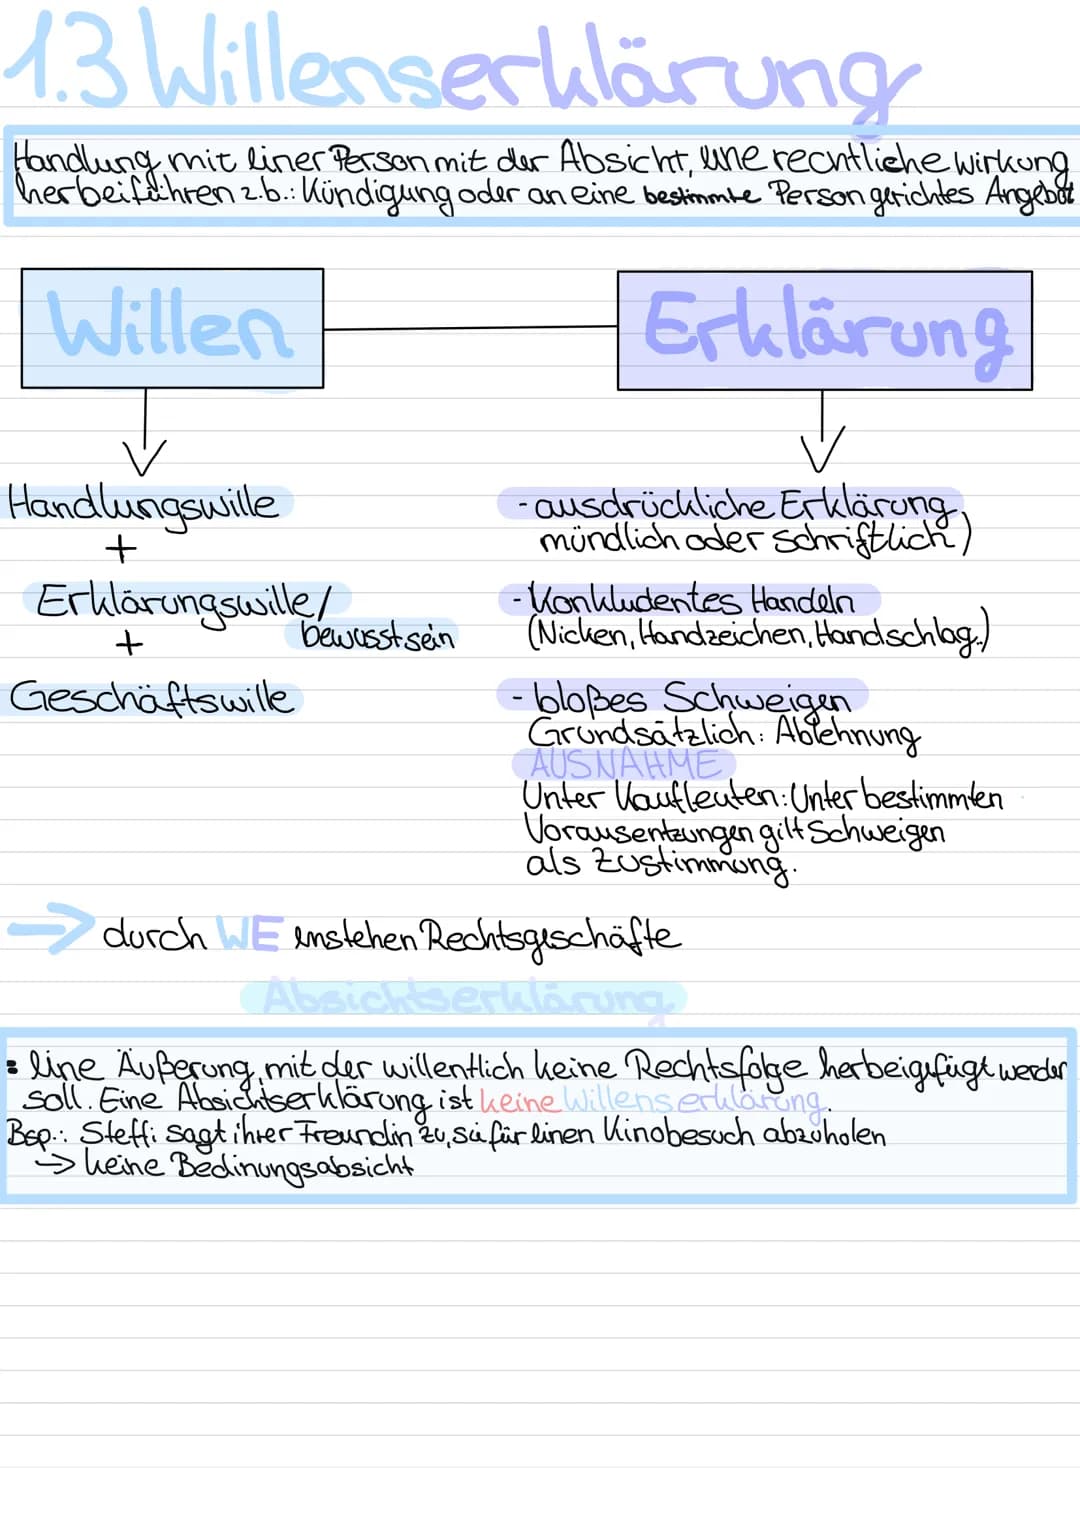 1.3 Willenserklärung
Handlung mit einer Person mit der Absicht, eine rechtliche wirkung
herbeiführen z.b.: Kündigung oder an eine bestimmte Person gerichtes Angebot
Willen
Erklärung
Handlungswille
+
Erklärungswille/
bewusstsein
+
Geschäftswille
- ausdrückliche Erklärung
mündlich oder schriftlich)
- Konkludentes Handeln
(Nicken, Handzeichen, Handschlag..)
- bloßes Schweigen
Grundsätzlich: Ablehnung
AUSNAHME
Unter Kaufleuten: Unter bestimmten
Vorausentzungen gilt Schweigen
als Zustimmung.
→ durch WE enstehen Rechtsgeschäfte
Absichtserklärung
= eine Äußerung, mit der willentlich keine Rechtsfolge herbeigefügt werden
soll. Eine Absichtserklärung ist keine Willenserklärung.
Bsp.: Steffi sagt ihrer Freundin zu, sie für einen Kinobesuch abzuholen
→ keine Bedinungsabsicht